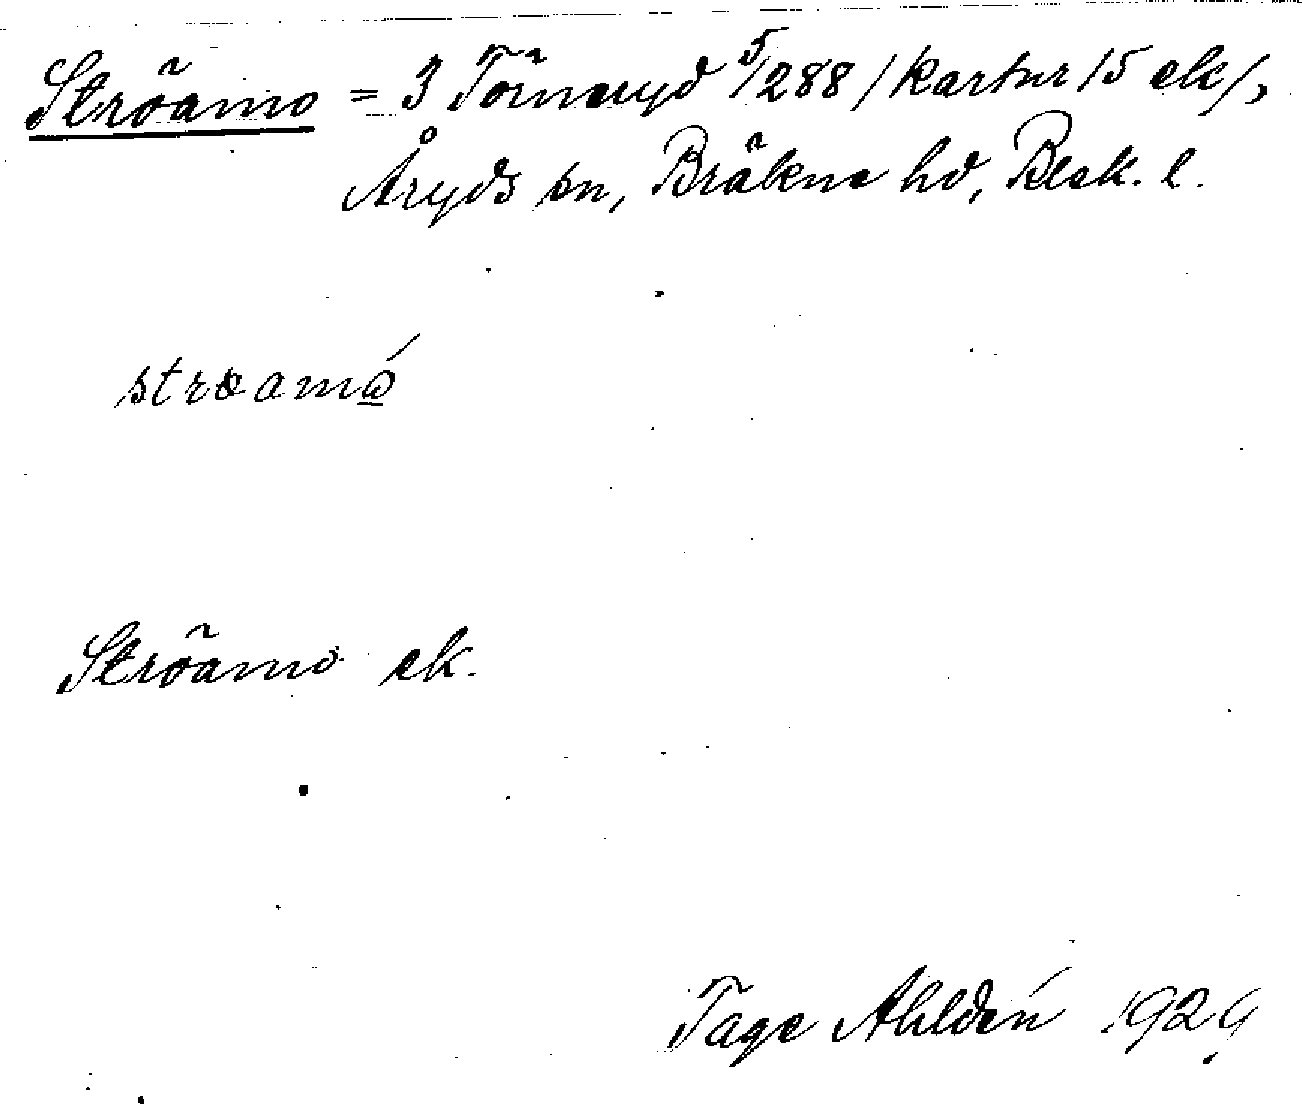 Ströamo = 3 Törneryd 5/288 /kartur 15 ek/,
Åryds sn, Bräkne hd, Blek. l.
Ströamo ek.
Tage Ahldén 1929